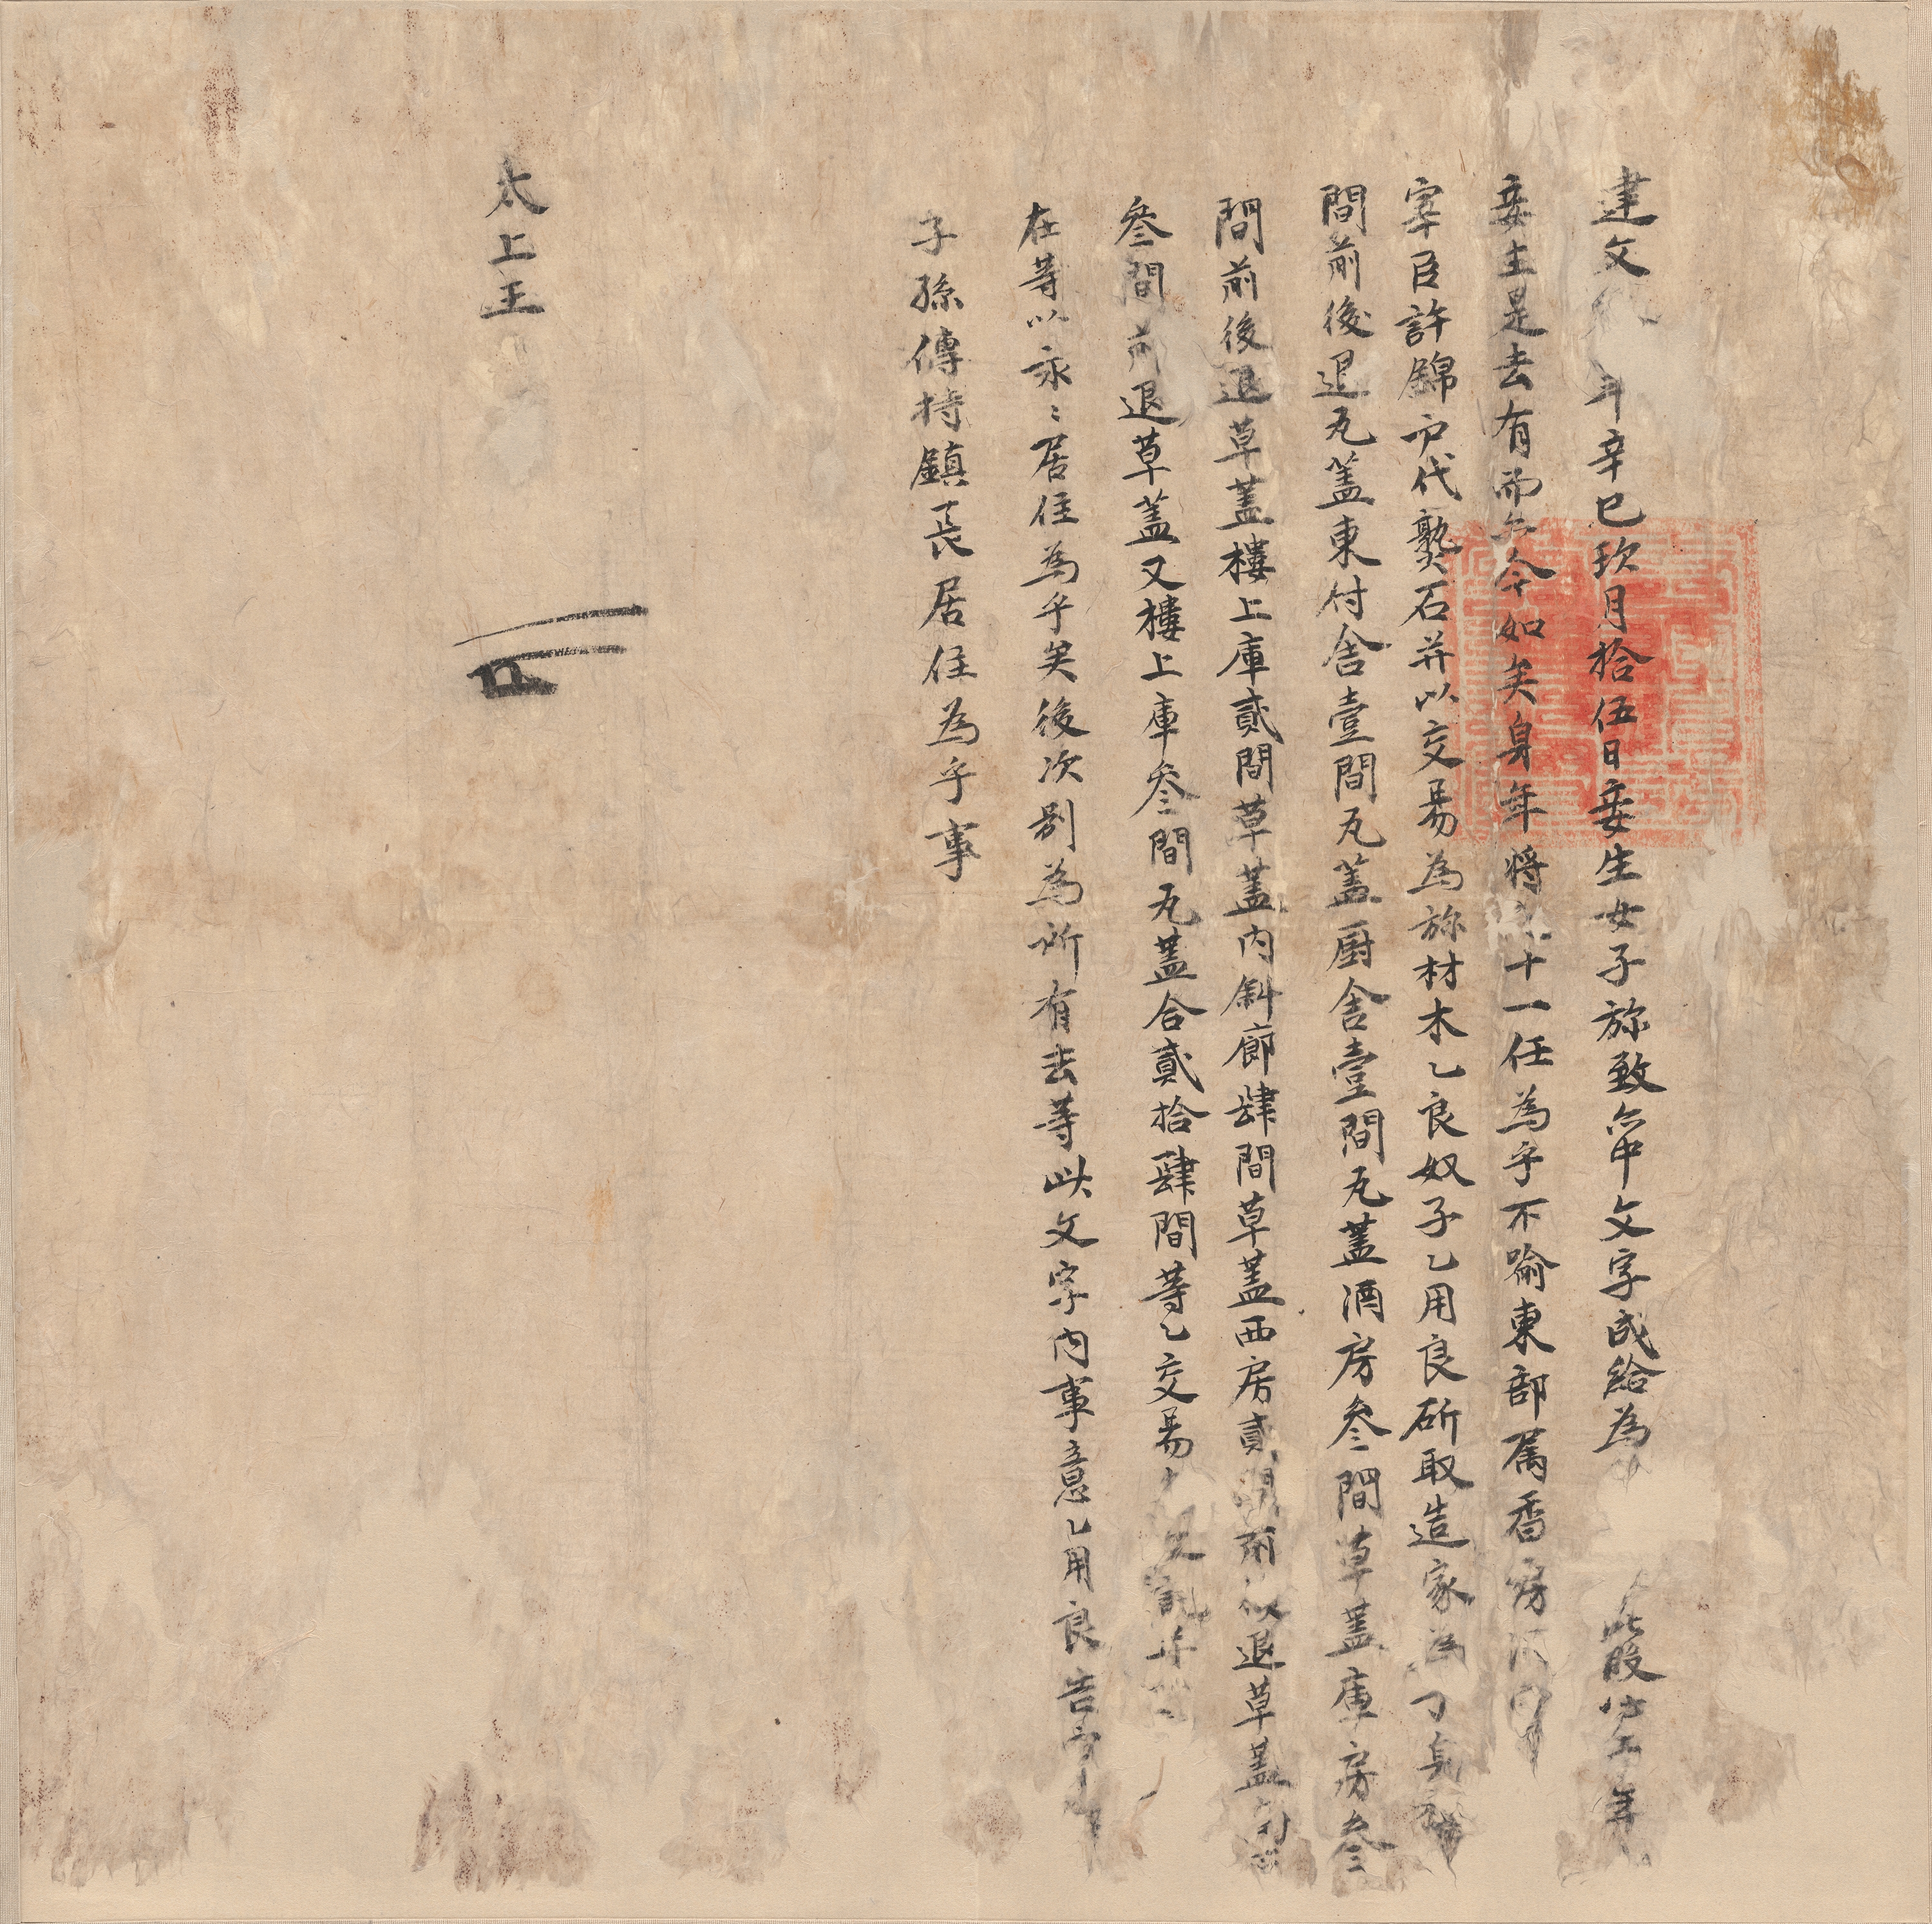 建文 年辛巳玖月拾伍日妾生女子旀致亦中文字成給為 此段 年
妾生是去有而亦今如矣身年將 十一任為乎不喩東部属香房
宰臣許錦戸代熟石幷以交易為旀材木乙良奴子乙用良斫取造家為
間前後退瓦蓋東付舍壹間瓦蓋厨舍壹間瓦蓋酒房叄間草蓋庫房叄
間前後退草蓋樓上庫貳間草蓋内斜廊肆間草蓋西房貳間前 退草蓋
叄間前退草蓋又樓上庫叄間瓦蓋合貳拾肆間等乙交易
在等以永〻居住為乎矣後次別為所有去等此文字内事意乙用良告官
子孫傳持鎮長居住為乎事
太上王